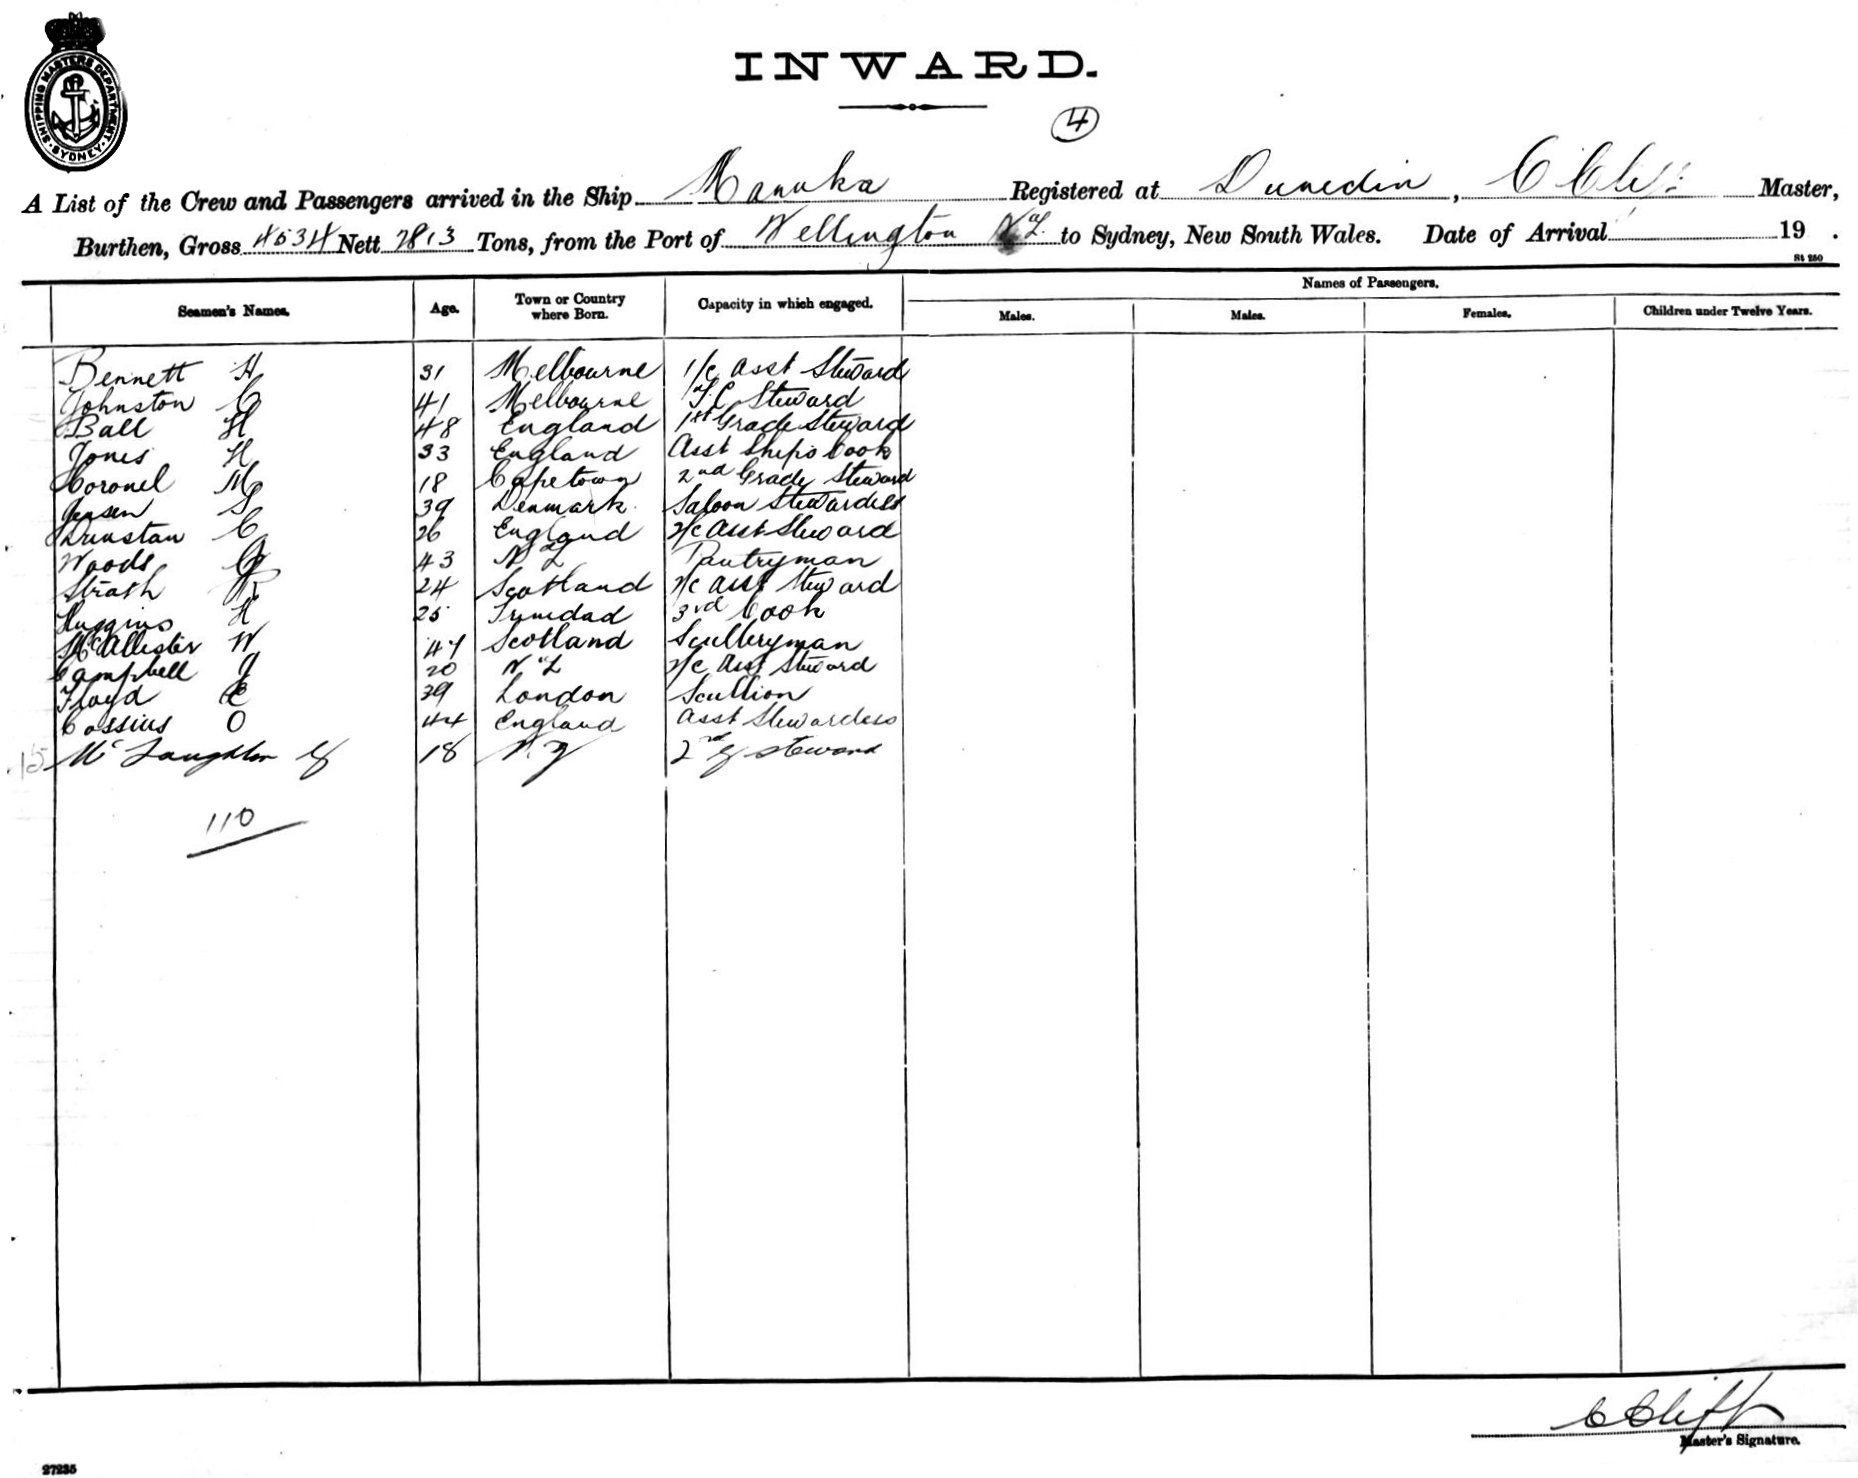 SHIPPING MASTERS DEPARTMENT
SYDNEY
INWARD.
4
A List of the Crew and Passengers arrived in the Ship Manuka Registered at Dunedin, C Cliff Master,
Burthen, Gross 4534 Nett 2813 Tons, from the Port of Wellington NZ to Sydney, New South Wales. Date of Arrival 19 .
St 250
Seamen's Names. Age. Town or Country where Born. Capacity in which engaged. Names of Passengers.
Males. Males. Females. Children under Twelve Years.
Bennett H 31 Melbourne 1/c Asst Steward
Johnston C 41 Melbourne Steward
Ball H 48 England 1st Grade Steward
Jones H 33 England Asst Ship's Cook
Coronel M 18 Capetown 2nd Grade Steward
Jensen S 39 Denmark Saloon Stewardess
Dunstan C 26 England 2/c Asst Steward
Woods G 43 N Z Pantryman
Strath R 24 Scotland 2/c Asst Steward
Huggins H 25 Trinidad 3rd Cook
McAllister W 47 Scotland Sculleryman
Campbell J 20 N Z 2/c Asst Steward
Floyd E 39 London Scullion
Cossius O 44 England Asst Stewardess
15 McLaughlin 18 N.Z 2nd G Steward
110
C Cliff
Master's Signature.
27235